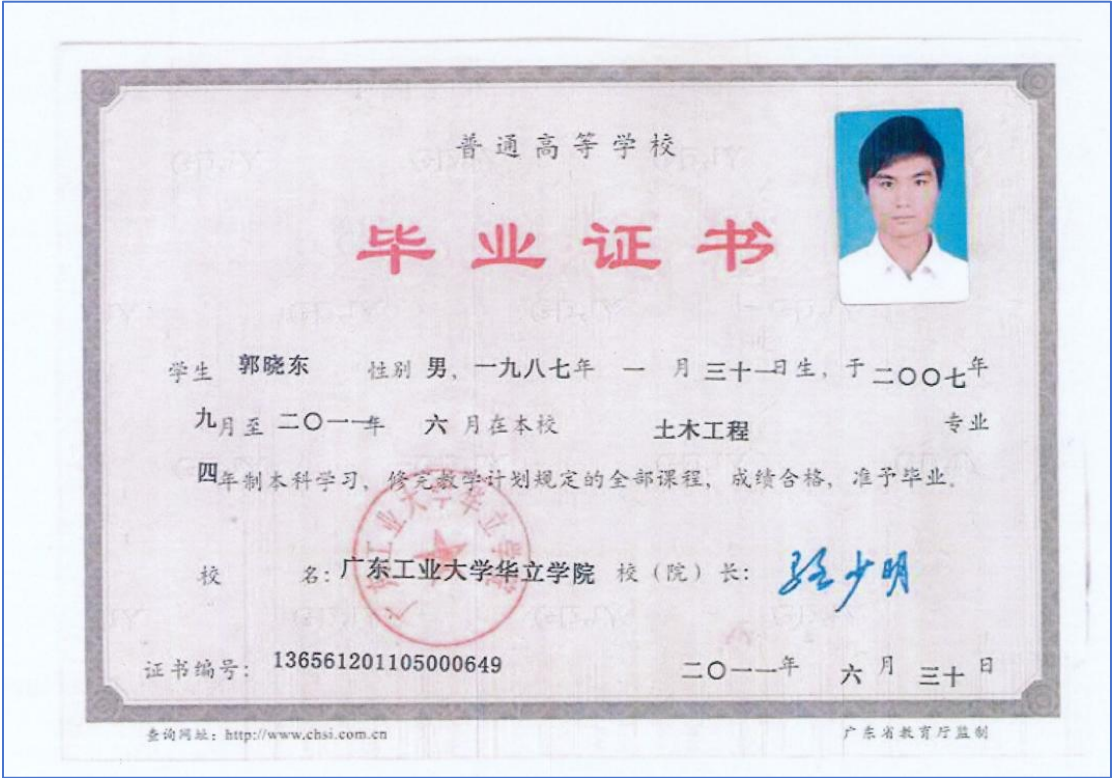 普通高等学校
毕业证书
学生 郭晓东 性别 男、一九八七年 一 月 三十一日生，于 二〇〇七年
九月至 二〇一一年 六 月在本校 土木工程 专业
四年制本科学习，修完教学计划规定的全部课程，成绩合格，准予毕业。
广东工业大学华立学院
校 名：广东工业大学华立学院 校（院）长：
证书编号：136561201105000649 二〇一一年 六 月 三十 日
查询网址：http://www.chsi.com.cn 广东省教育厅监制